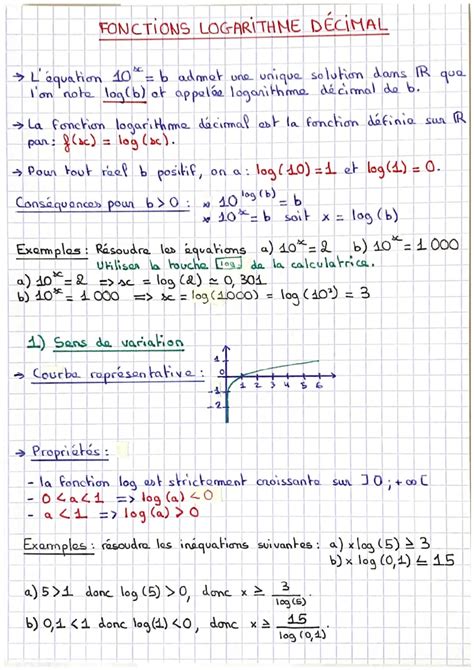 FONCTIONS LOGARITHME DÉCIMAL
→ L'équation 10^x = b admet une unique solution dans ℝ que
l'on note log(b) et appelée logarithme décimal de b.
→ La fonction logarithme décimal est la fonction définie sur ℝ
par : f(x) = log(x).
→ Pour tout réel b positif, on a : log(10) = 1 et log(1) = 0.
Conséquences pour b > 0 : * 10^log(b) = b
* 10^x = b soit x = log(b)
Exemples : Résoudre les équations a) 10^x = 2 b) 10^x = 1 000
Utiliser la touche log de la calculatrice.
a) 10^x = 2 => x = log(2) ≃ 0,301
b) 10^x = 1 000 => x = log(1000) = log(10³) = 3
1) Sens de variation
→ Courbe représentative :
1
0
1 2 3 4 5 6
-1
-2
→ Propriétés :
- la fonction log est strictement croissante sur ]0 ; +∞[
- 0 < a < 1 => log(a) < 0
- a < 1 => log(a) > 0
Exemples : résoudre les inéquations suivantes : a) x log(5) ≥ 3
b) x log(0,1) ≤ 15
a) 5 > 1 donc log(5) > 0, donc x ≥ 3/log(5).
b) 0,1 < 1 donc log(1) < 0, donc x ≥ 15/log(0,1).